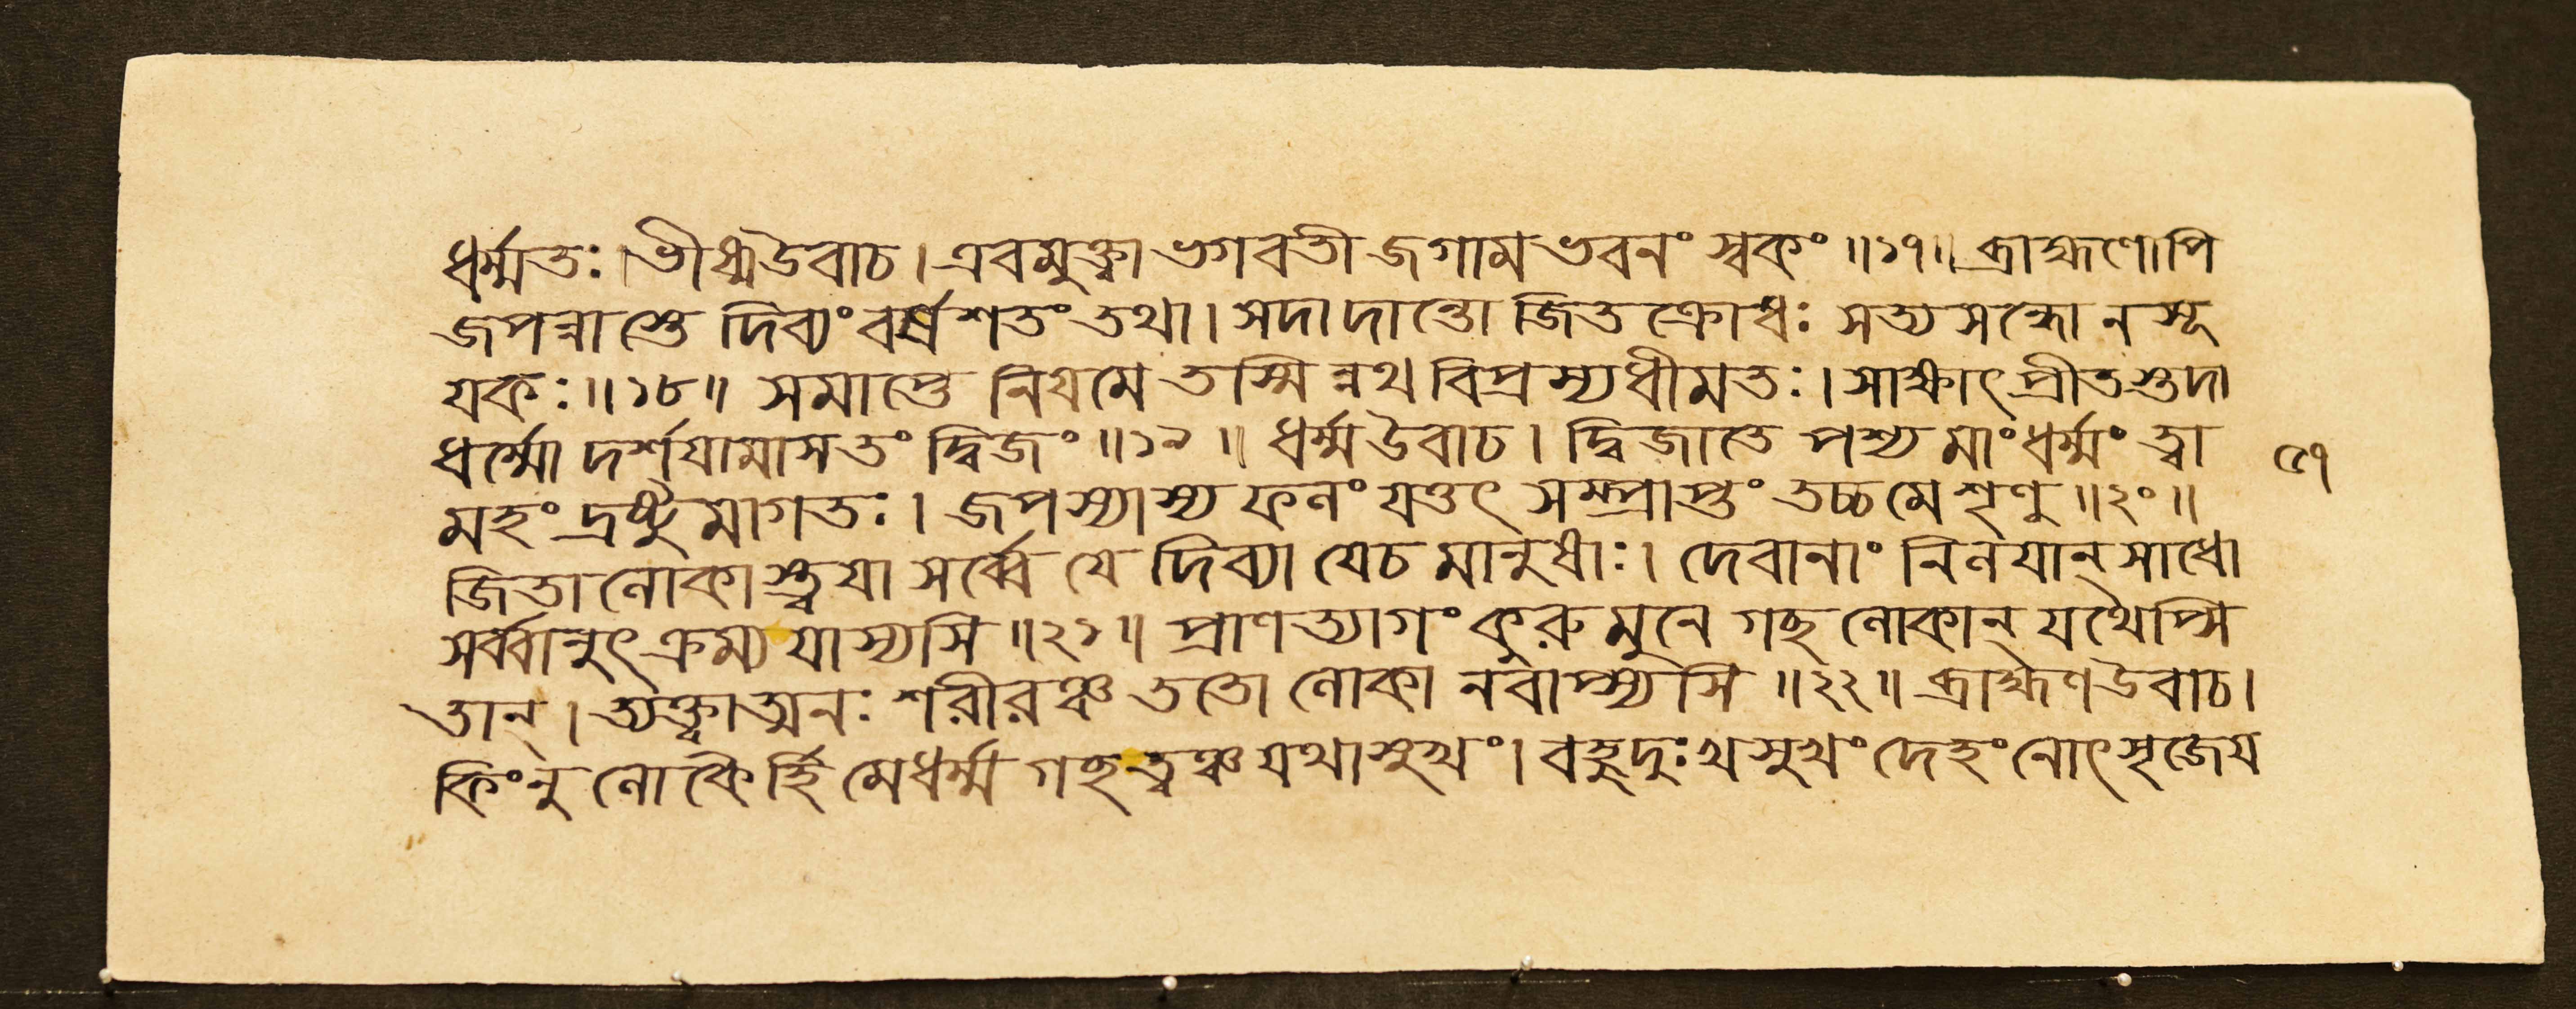 ধর্ম্মতঃ।ভীষ্মউবাচ।এবমুক্ত্বা ভগবতী জগাম ভবনং স্বকং॥১৭॥ ব্রাহ্মণোপি
জপন্নাস্তে দিব্যং বর্ষশতং তথা। সদা দান্তো জিতক্রোধঃ সত্যসন্ধোনসূ
যকঃ॥১৮॥ সমাপ্তে নিয়মে তস্মিন্নথ বিপ্রস্যধীমতঃ। সাক্ষাৎ প্রীতস্তদা
ধর্ম্মো দর্শয়ামাসতং দ্বিজং॥১৯॥ ধর্ম্মউবাচ। দ্বিজাতে পশ্য মাংধর্ম্মং ত্বা
মহং দ্রষ্টুমাগতঃ। জপস্যাস্য ফলং যত্তৎ সম্প্রাপ্তং তচ্চমে শৃণু॥২০॥
জিতা লোকাস্ত্বয়া সর্ব্বে যে দিব্যা যেচ মানুষাঃ। দেবানাং নিলয়ান্ সাধো
সর্ব্বানুৎক্রম্য যাস্যসি॥২১॥ প্রাণত্যাগং কুরু মুনে গচ্ছ লোকান্ যথেপ্সি
তান্। ত্যক্ত্বাত্মনঃ শরীরঞ্চ ততো লোকানবাপ্স্যসি॥২২॥ ব্রাহ্মণউবাচ।
কিংনু লোকৈর্হি মেধর্ম্ম গচ্ছত্বঞ্চ যথাসুখং। বহুদুঃখসুখং দেহং নোৎসৃজেয়
৫৭